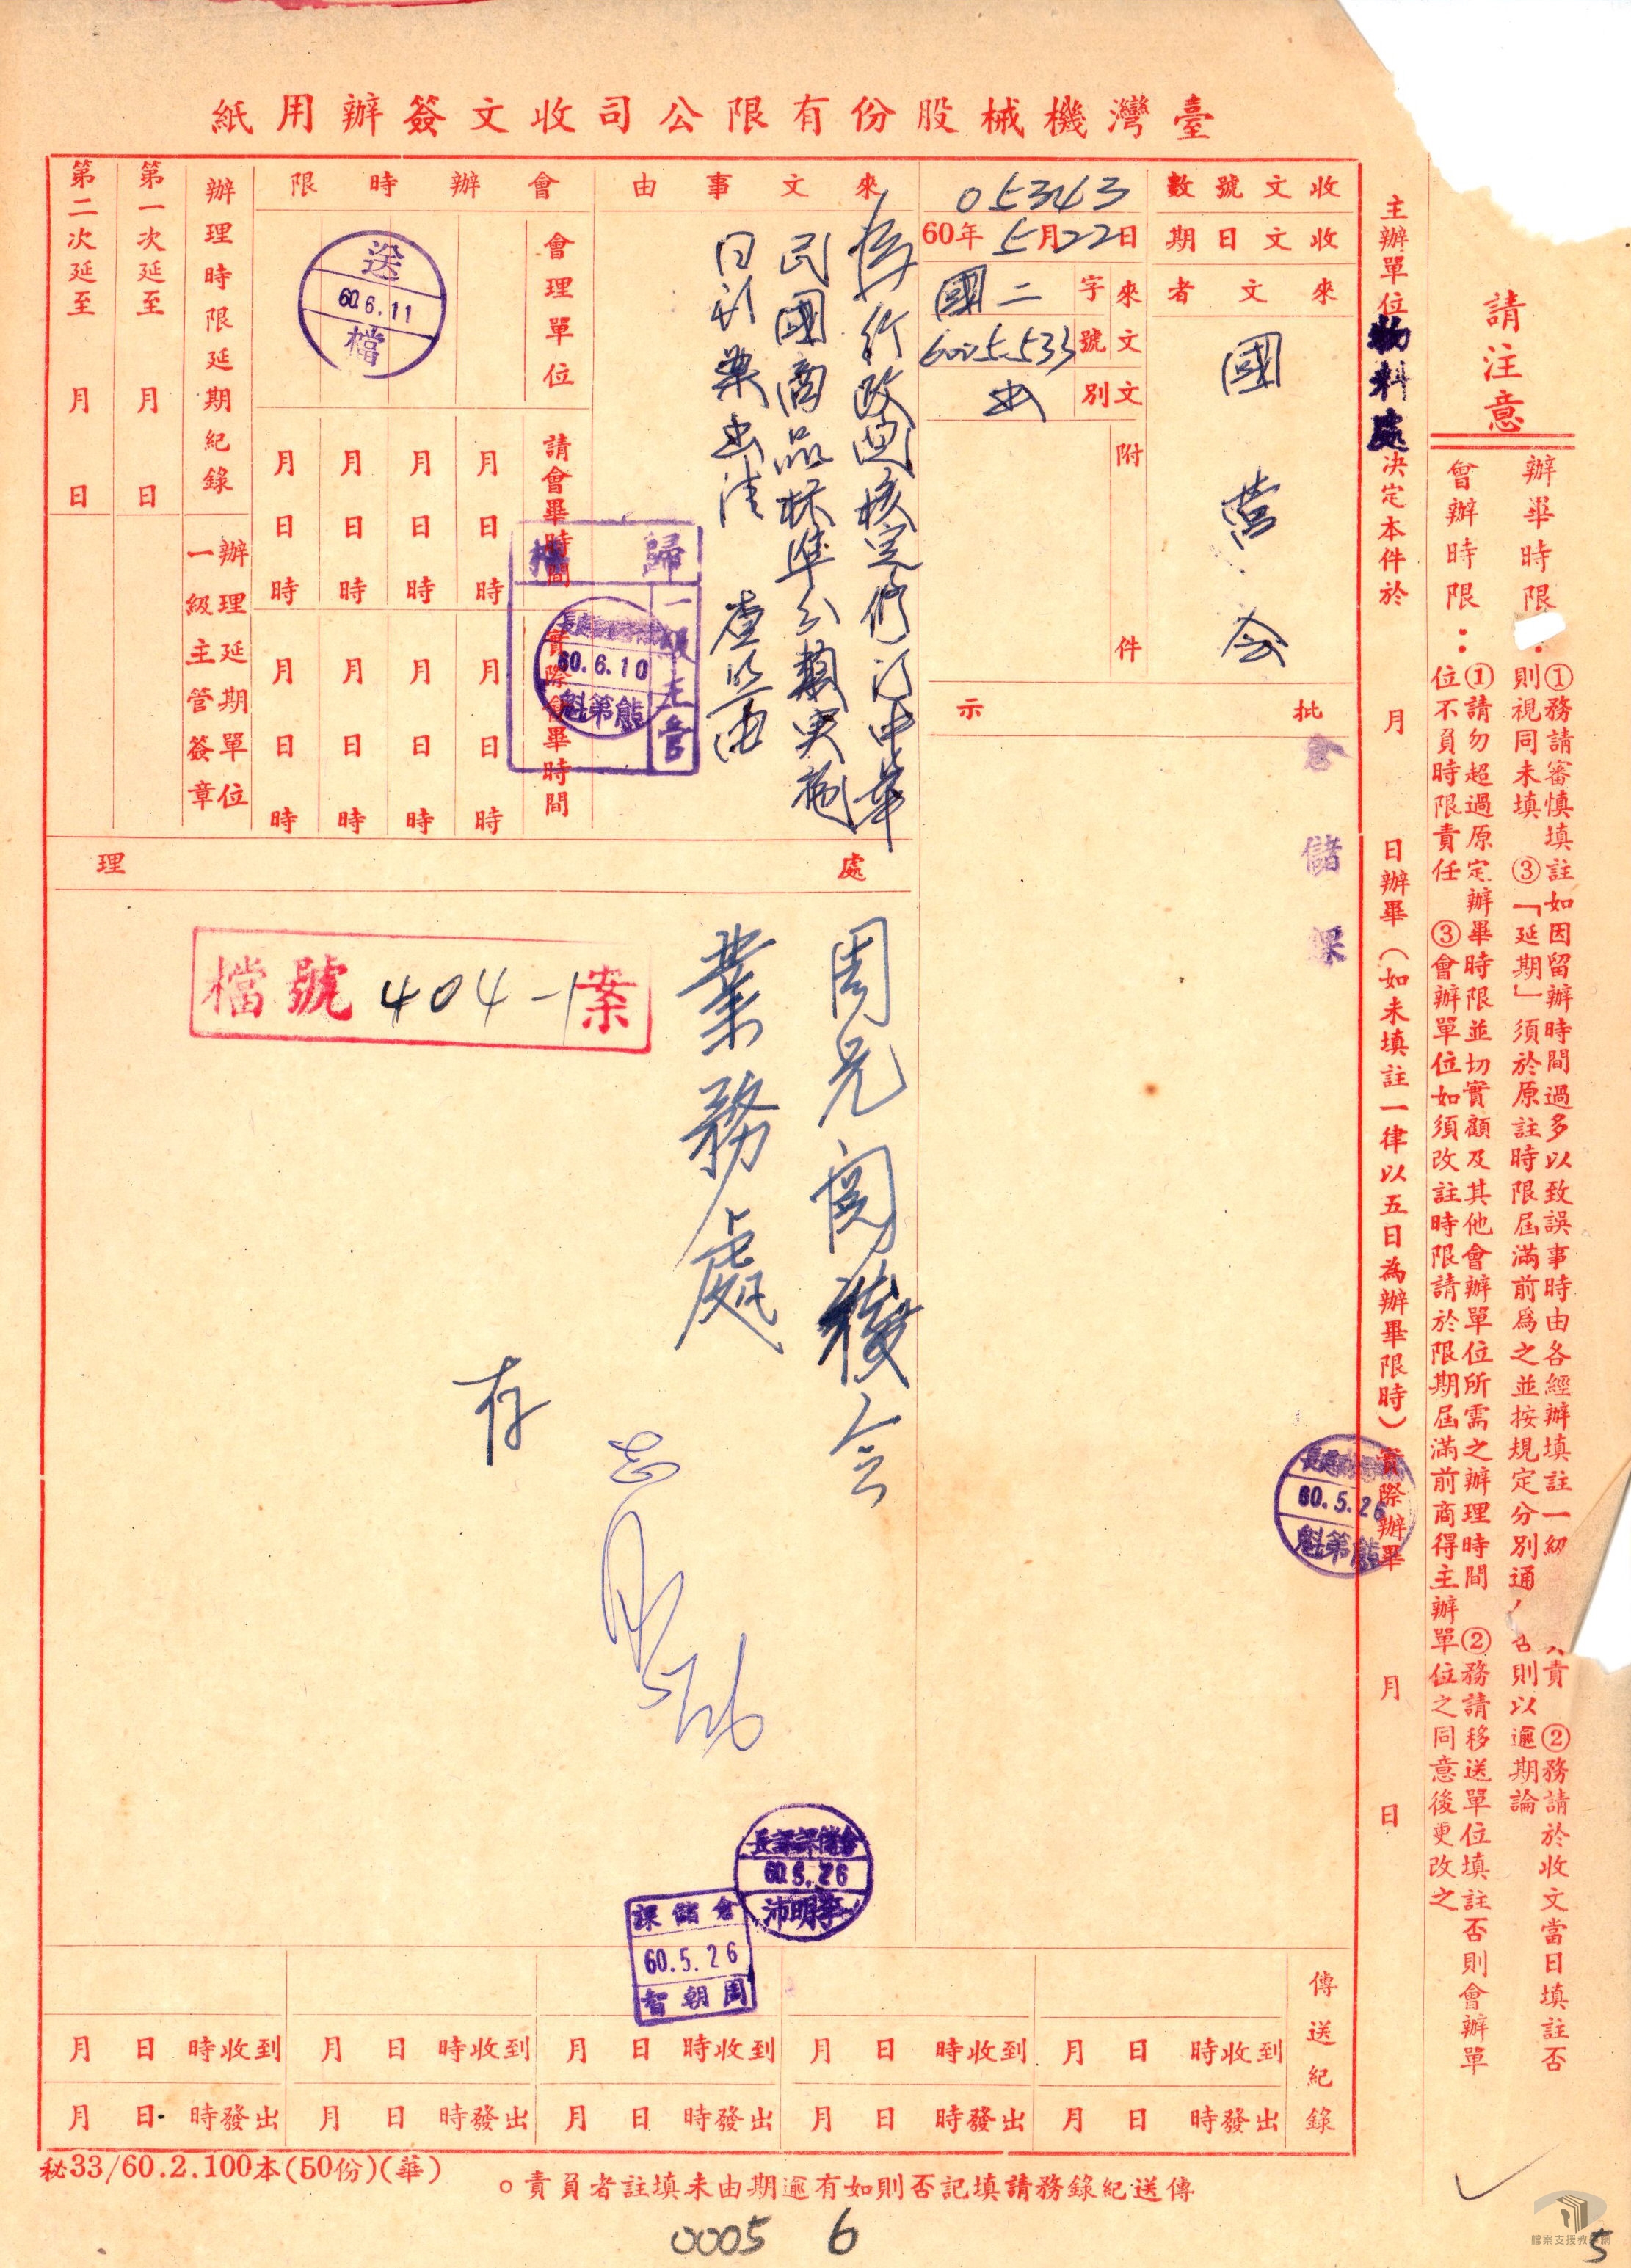 臺灣機械股份有限公司收文簽辦用紙
請注意
辦畢時限：①務請審慎填註如因留辦時間過多以致誤事時由各經辦填註一級
責 ②務請於收文當日填註否
則視同未填 ③「延期」須於原註時限屆滿前爲之並按規定分別通
否則以逾期論
會辦時限：①請勿超過原定辦畢時限並切實顧及其他會辦單位所需之辦理時間 ②務請移送單位填註否則會辦單
位不負時限責任 ③會辦單位如須改註時限請於限期屆滿前商得主辦單位之同意後更改之
主辦單位物料處決定本件於 月 日辦畢（如未填註一律以五日為辦畢限時）實際辦畢 月 日
收文號數 05343
收文日期 60年5月22日
來文者 國營会
來文字號 國二 6005.533
文別 函
附件
來文事由
為行政院核定修訂中華
民國商品標準分類実施
日期案函請 查照由
會辦時限
會理單位
請會畢時間
實際會畢時間
月 日 時
月 日 時
月 日 時
月 日 時
月 日 時
月 日 時
月 日 時
月 日 時
送
60.6.11
檔
歸檔
一級主管
60.6.10
熊第魁
辦理時限延期紀錄
第一次延至 月 日
第二次延至 月 日
辦理延期單位
一級主管簽章
批示
倉儲課
處長
60.5.26
熊第魁
處理
檔號 404-1 案
周兄閱後会
業務處
存
倉儲課課長
60.5.26
李明沛
倉儲課
60.5.26
周朝智
傳送紀錄
月 日 時收到
月 日 時收到
月 日 時收到
月 日 時收到
月 日 時收到
月 日 時發出
月 日 時發出
月 日 時發出
月 日 時發出
月 日 時發出
傳送紀錄務請填記否則如有逾期由未填註者負責。
秘33/60.2.100本(50份)(華)
0005 6
5
檔案支援教學網